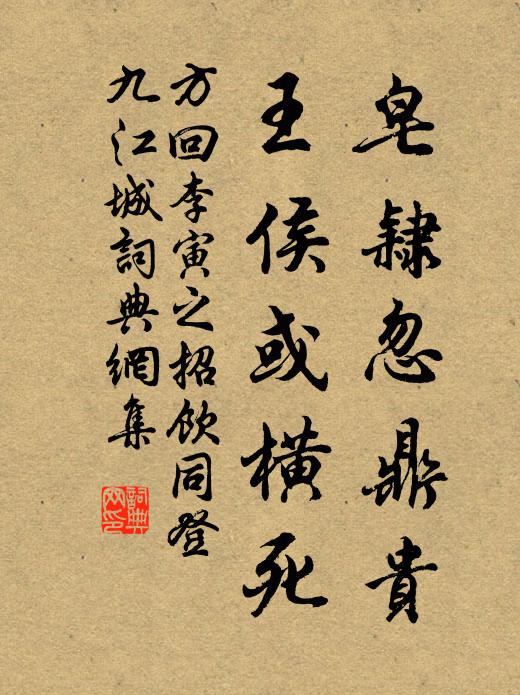 皂隸忽鼎貴
王侯或橫死
方回李寅之招飲同登
九江城詞典網集
詞典
网印